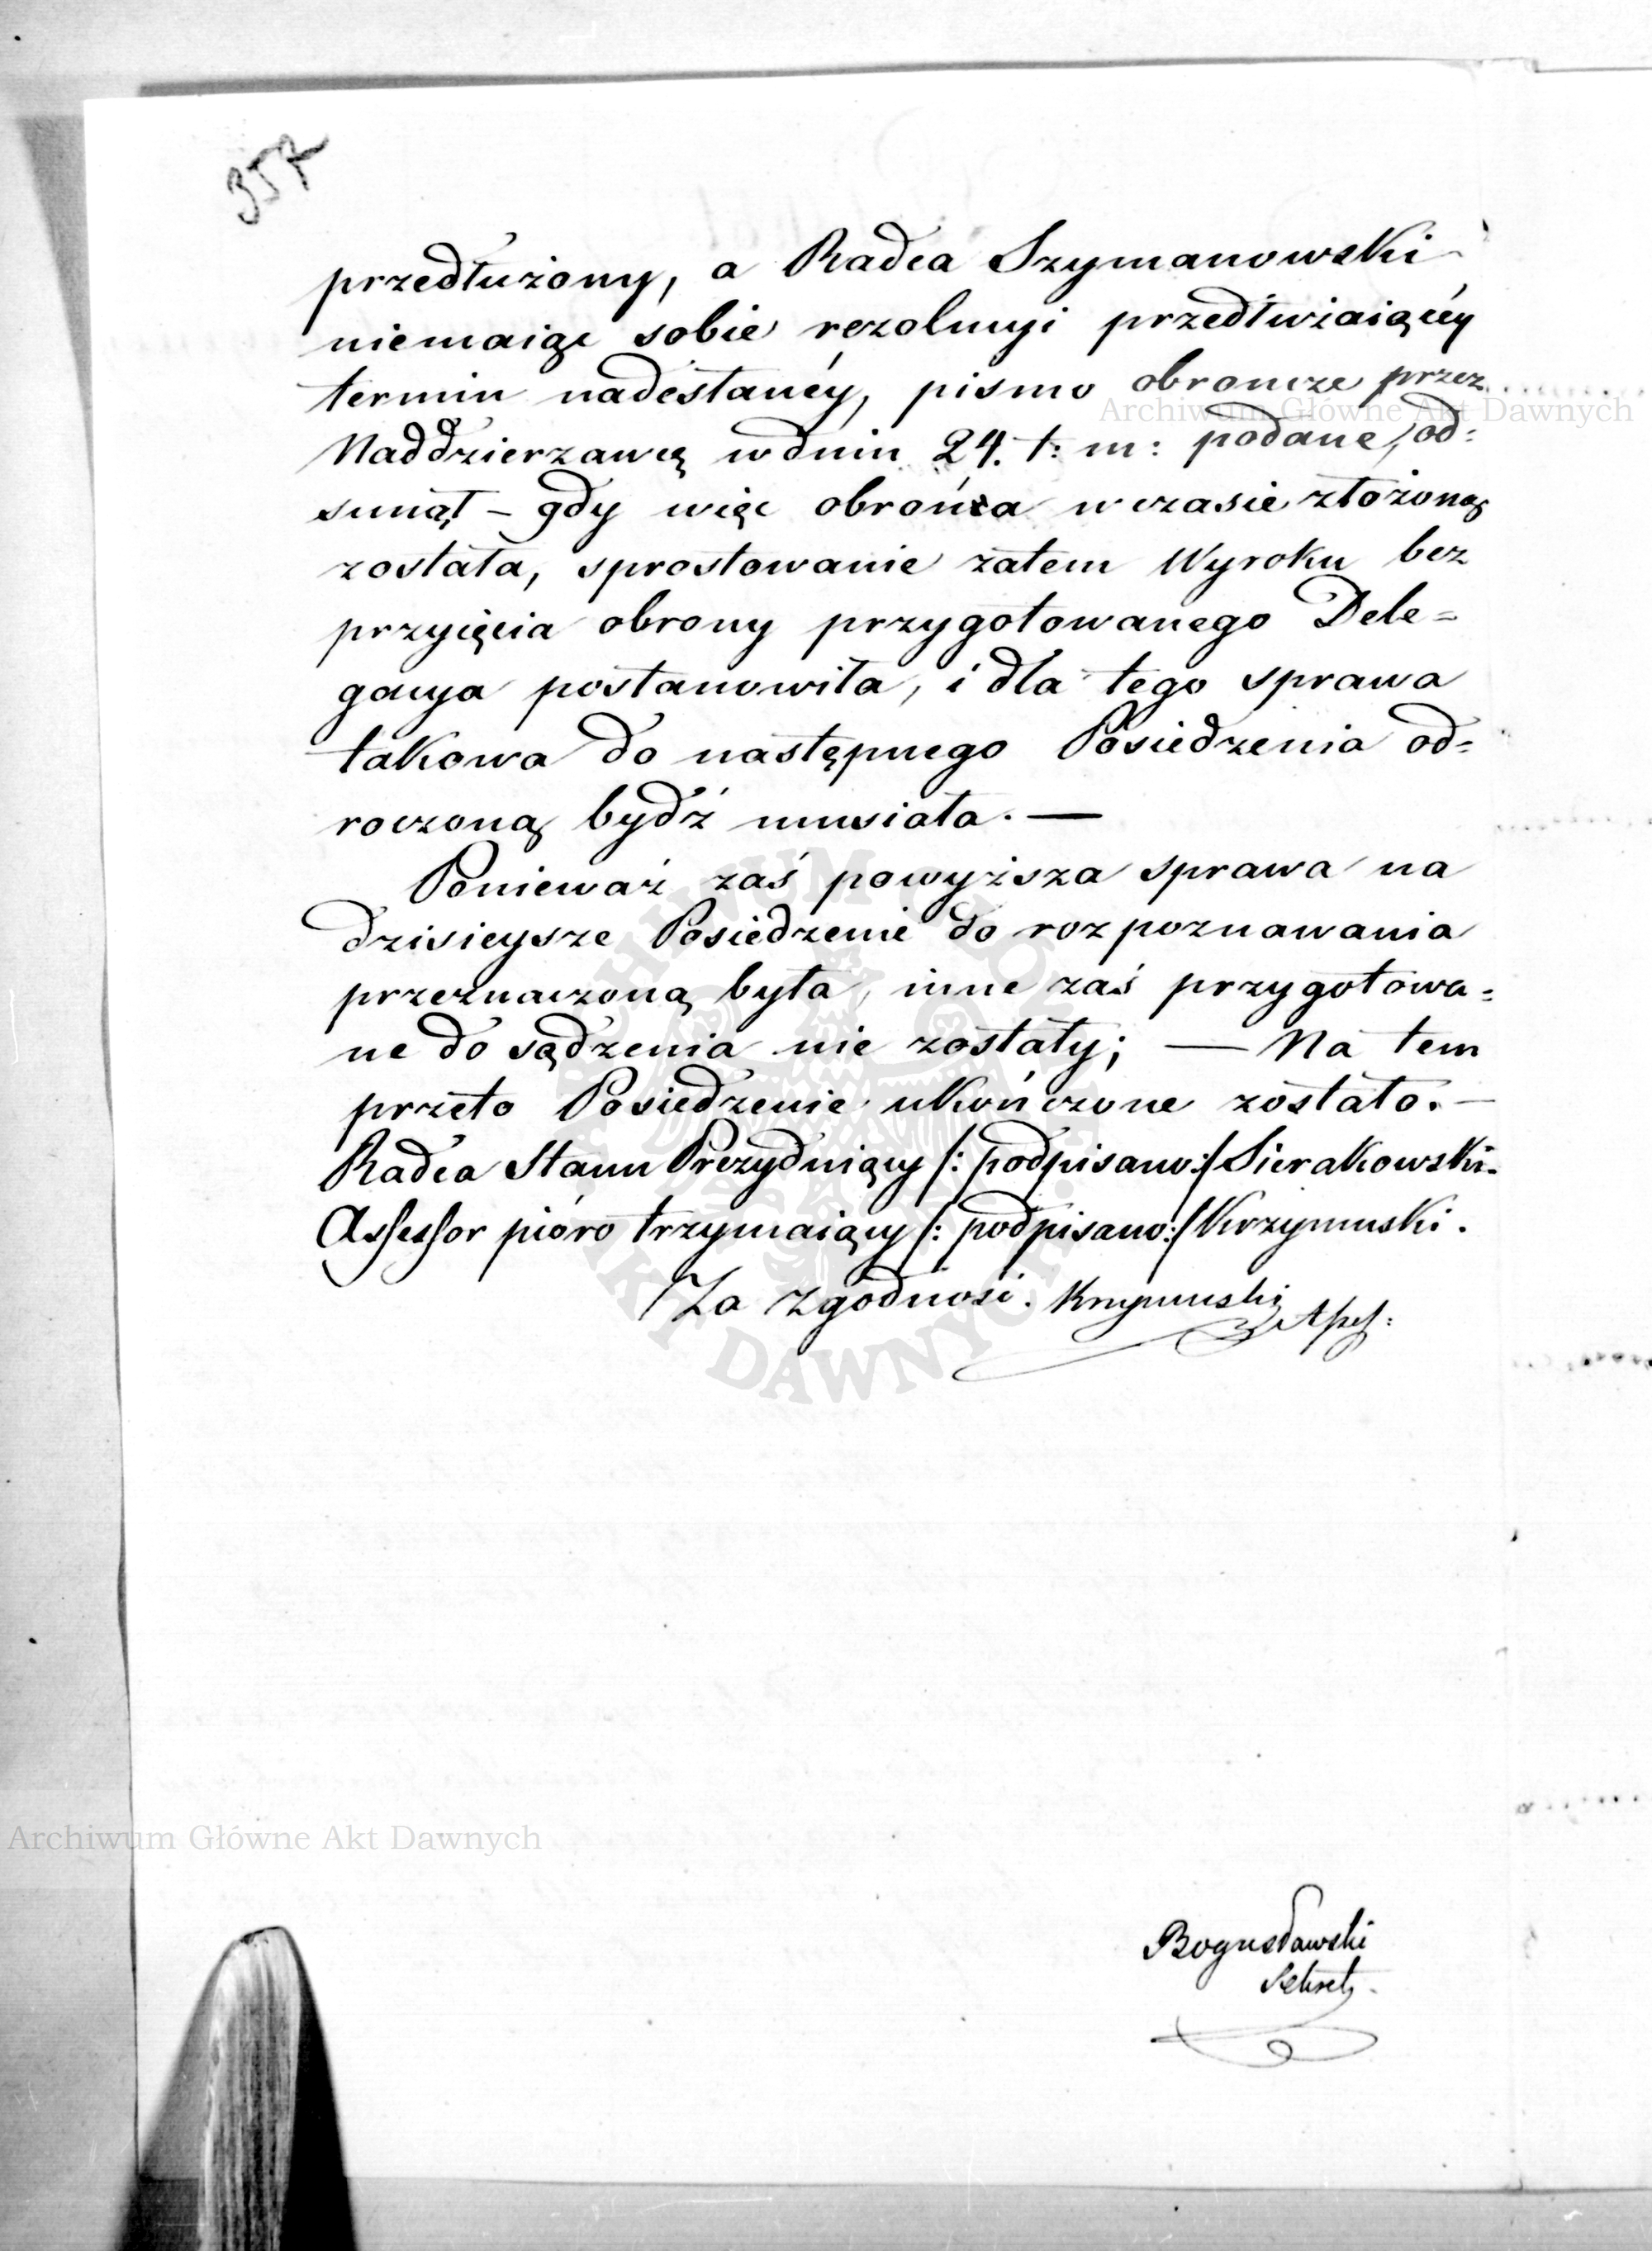 357
przedłużony, a Radca Szymanowski
niemaiąc sobie rezolucyi przedłużaiącéy
termin nadesłanéy, pismo obroncze przez
Archiwum Główne Akt Dawnych
Naddzierzawcę w dniu 24. t: m: podane, od=
sunął – gdy więc obrońca w czasie złożoną
została, sprostowanie zatem Wyroku bez
przyięcia obrony przygotowanego Dele=
gacya postanowiła, i dla tego sprawa
takowa do następnego Posiedzenia od=
roczoną bydź musiała. —
Ponieważ zaś powyższa sprawa na
dzisieysze Posiedzenie do rozpoznawania
przeznaczoną była, inne zaś przygotowa=
ne do sądzenia nie zostały; — Na tem
przeto Posiedzenie ukończone zostało. —
Radca Stanu Prezyduiący /: podpisano:/ Sierakowski.
Assessor pióro trzymaiący /: podpisano:/ Krzymuski.
Za zgodność. Krzymuski
ARCHIWUM GŁÓWNE AKT DAWNYCH
Archiwum Główne Akt Dawnych
Bogusławski
Sekret.